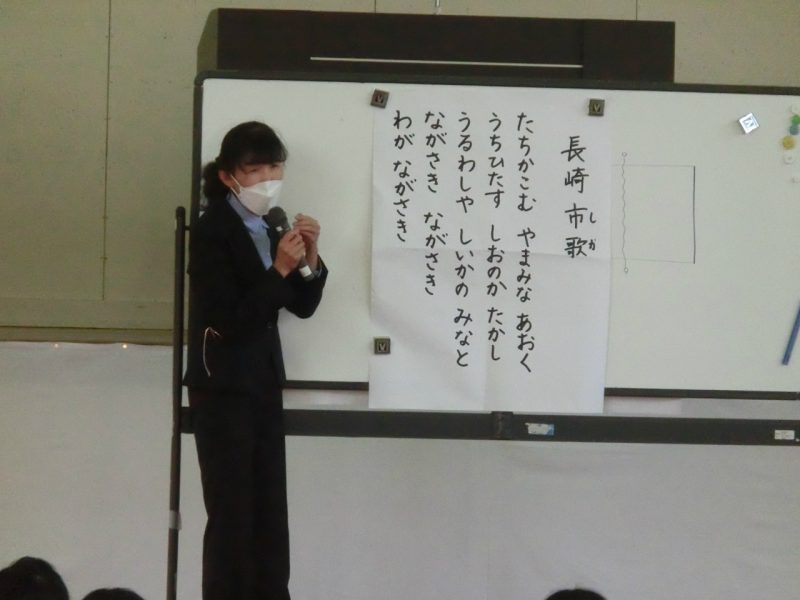 長崎市歌
しか
たちかこむ やまみな あおく
うちひたす しおのか たかし
うるわしや しいかの みなと
ながさき ながさき
わが ながさき